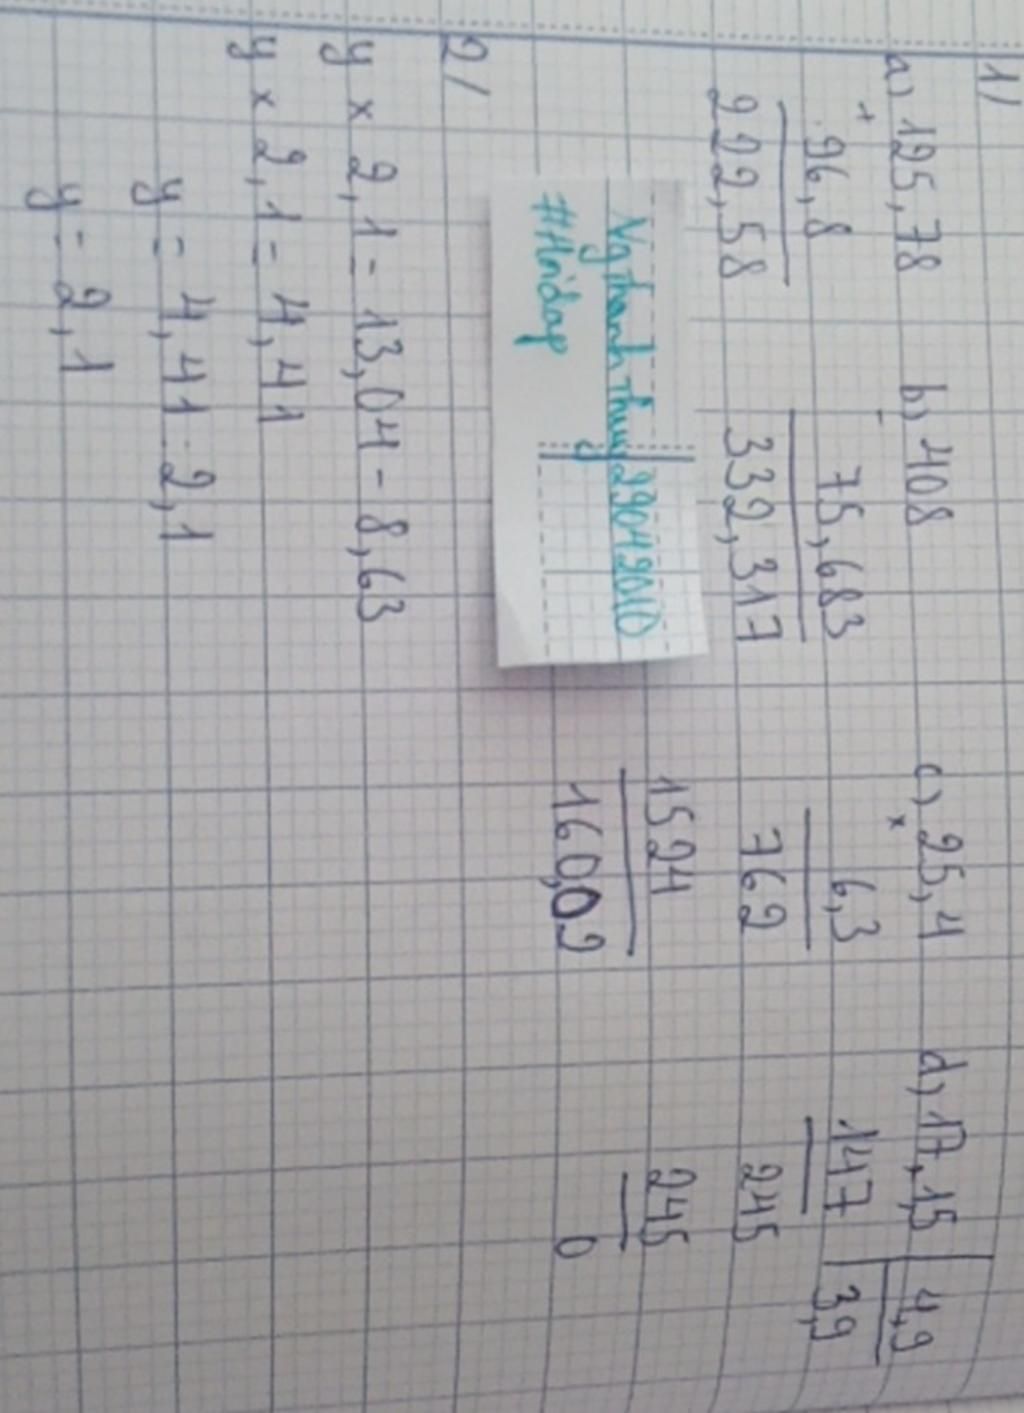 1/
a) 125,78
+
96,8
222,58
b) 408
-
75,683
332,317
c) 25,4
x
6,3
762
1524
160,02
d) 17,15 4,9
147 3,9
245
245
0
Ngthanhthuy29042010
#Hoidap
2/
y x 2,1 = 13,04 - 8,63
y x 2,1 = 4,41
y = 4,41 : 2,1
y = 2,1